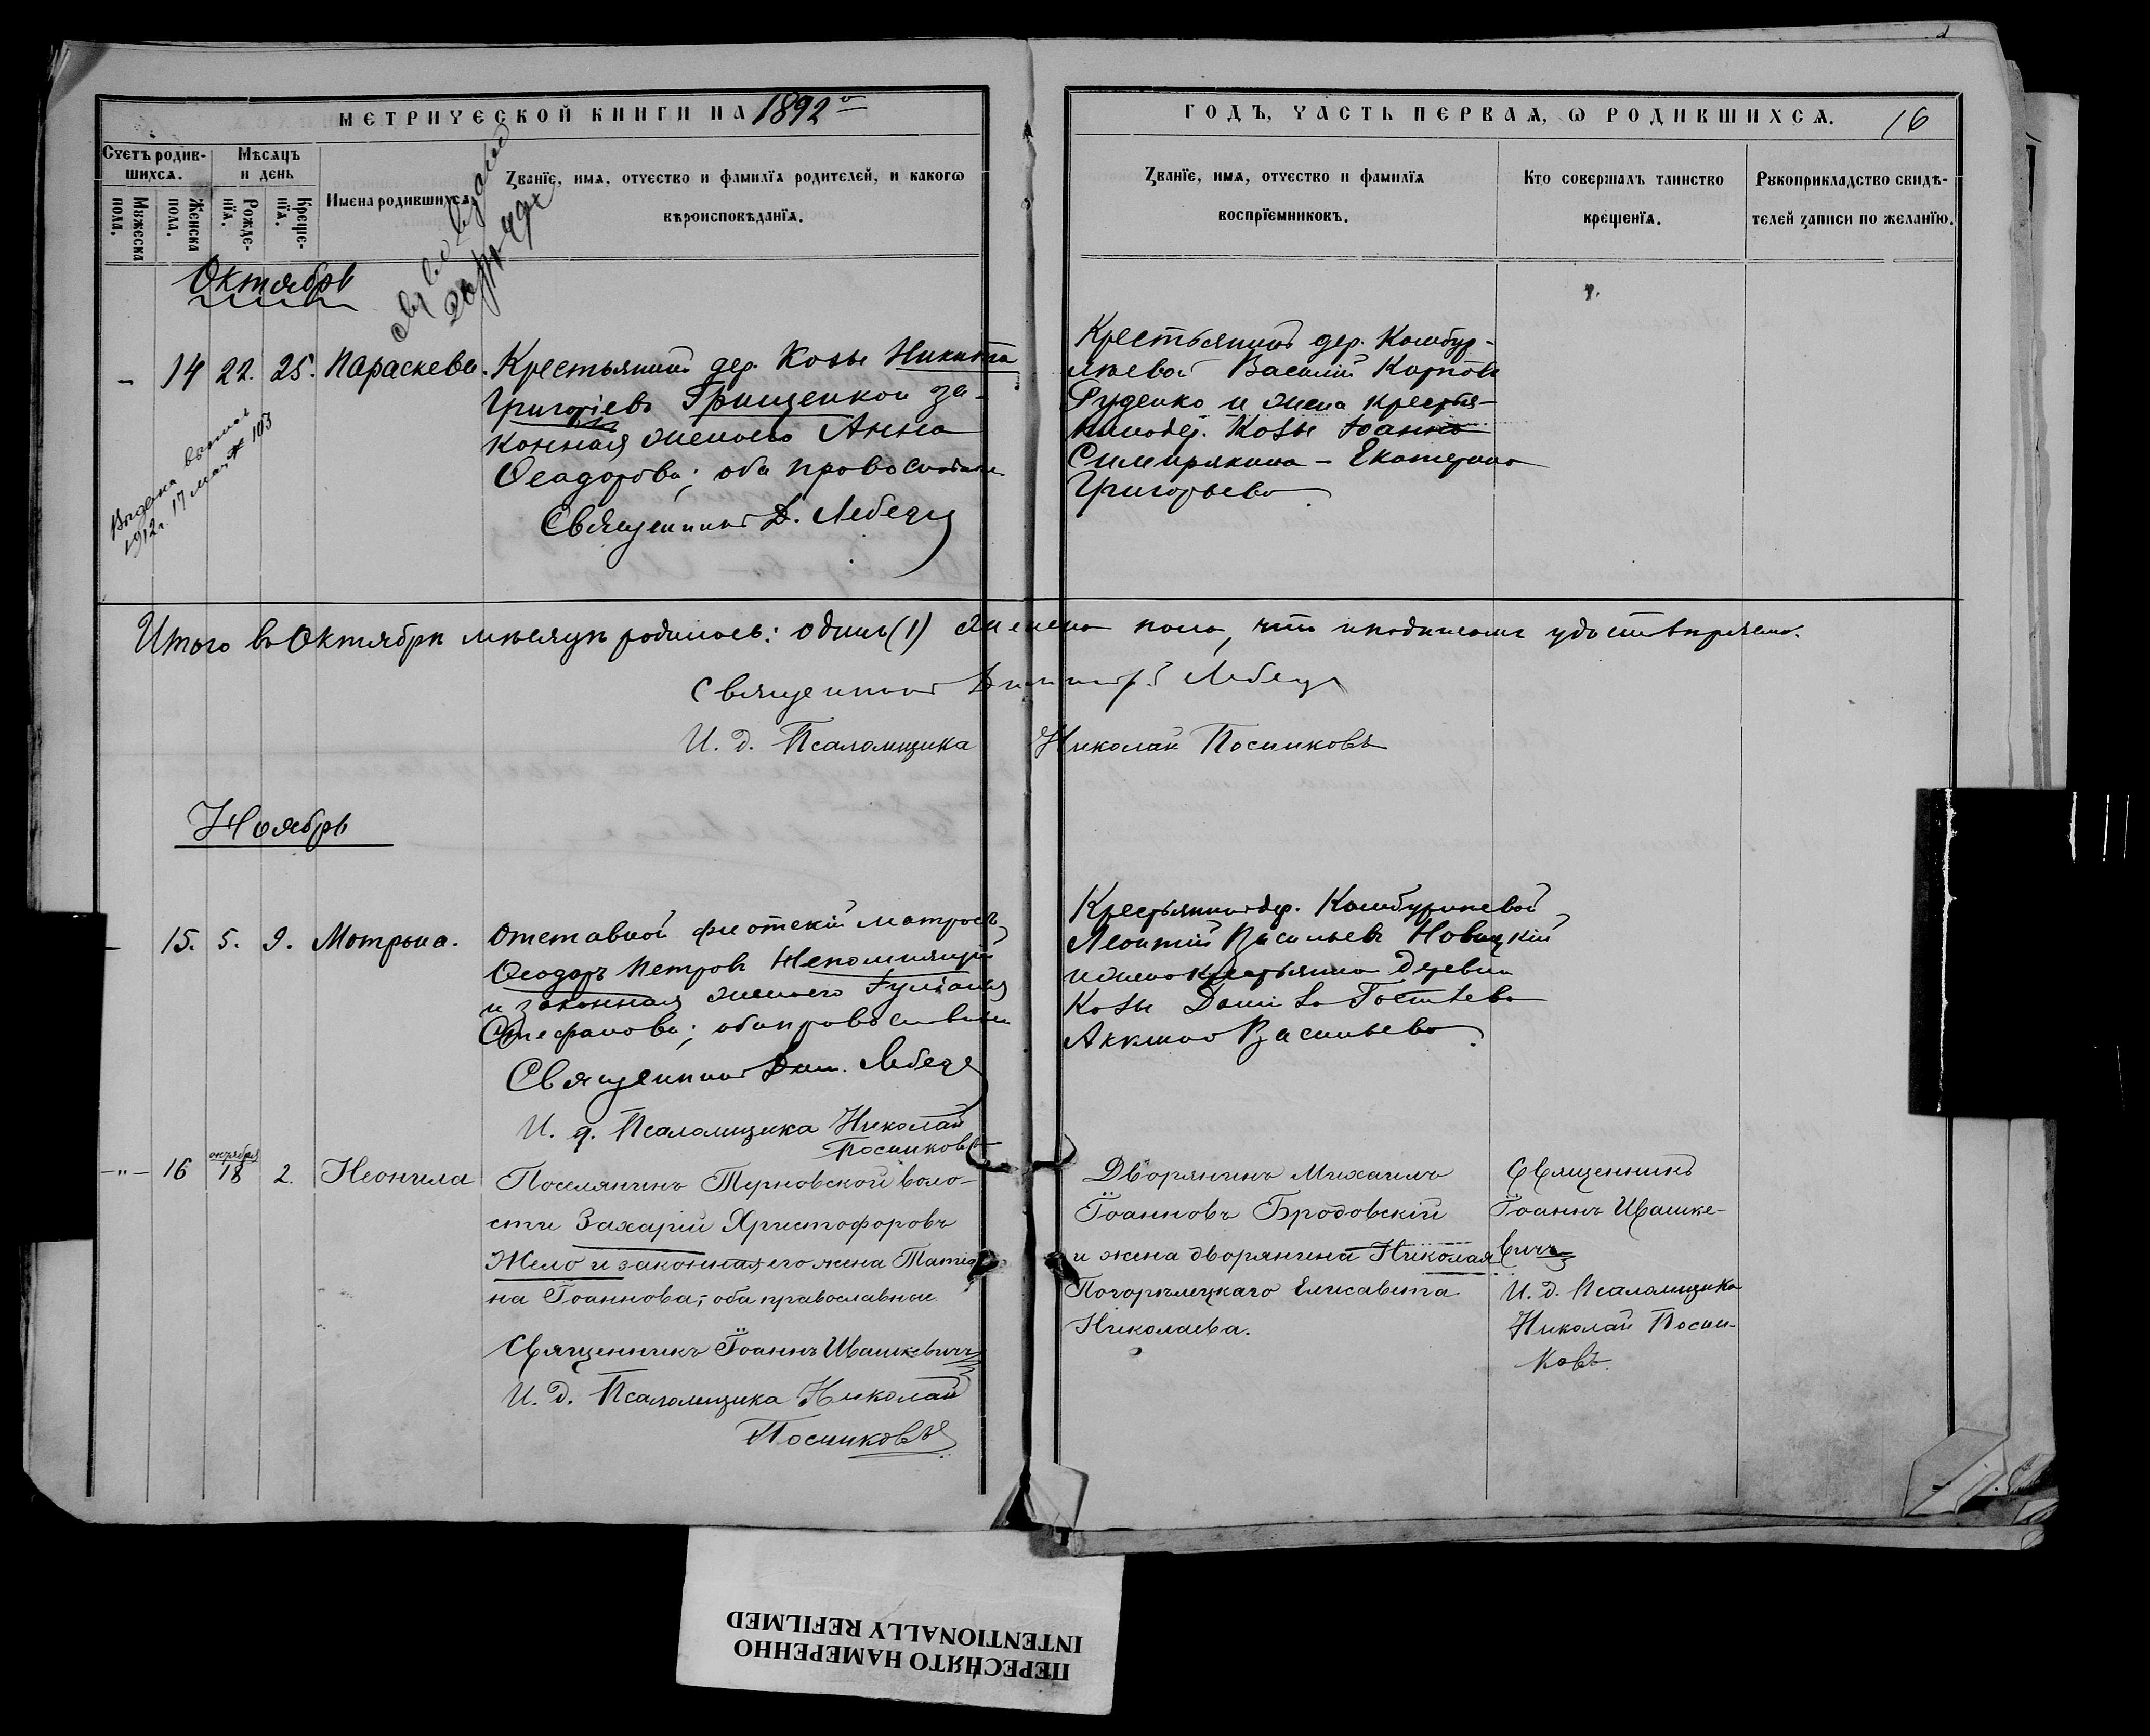 МЕТРИЧЕСКОЙ КНИГИ НА 1892
ГОДЪ, ЧАСТЬ ПЕРВАЯ, Ѡ РОДИВШИХСЯ. 16
Счетъ родив-
шихся.
Мѣсяцъ
и день
Мужеска
пола.
Женска
пола.
Рожде-
нїя.
Креще-
нїя.
Имена родившихся
Званїе, имя, отчество и фамилїя родителей, и какогѡ
вѣроисповѣданїя.
Званїе, имя, отчество и фамилїя
воспрїемниковъ.
Кто совершалъ таинство
крещенїя.
Рукоприкладство свидѣ-
телей записи по желанїю.
Октябрь
14 22. 25. Параскева. Крестьянинъ дер. Козы Никита
Григоріевъ Грищенков за-
конная жена его Анна
Ѳеодорова; оба православные
Священникъ Д. Лебедь
Выдана
1912 г. 17 мая № 103
Крестьянинъ дер. Камбур-
лѣевой Василій Карповъ
Руденко и жена крестья-
нина дер. Козы Іоанна
Екатерина
Григорьева
Итого въ Октябрѣ мѣсяцѣ родилось: одинъ (1) женска пола, что и подписомъ удостовѣряемъ.
Священникъ Димитрій Лебедь
И. д. Псаломщика Николай Посниковъ
Ноябрь
15. 5. 9. Мотрона. Отставной флотскій матросъ
Ѳеодоръ Петровъ Непомнящій
и законная жена его Іуліанія
Стефанова; оба православные
Священникъ Дим. Лебедь
И. д. Псаломщика Николай
Посниковъ
Крестьянинъ дер. Камбурлѣевой
Леонтій Васильевъ Новицкій
и жена крестьянина деревни
Козы
Васильева
16 октября 18 2. Неонила Поселянинъ Терновской воло-
сти Захарій Христофоровъ
Жело и законная его жена Татіа
на Іоаннова; оба православные
Священникъ Іоаннъ Ивашкевичъ
И. д. Псаломщика Николай
Посниковъ
Дворянинъ Михаилъ
Іоанновъ Бродовскій
и жена дворянина Николая
Погорѣлецкаго Елисавета
Николаева.
Священникъ
Іоаннъ Ивашке-
вичъ
И. д. Псаломщика
Николай Посни-
ковъ.
ПЕРЕСНЯТО НАМЕРЕННО
INTENTIONALLY REFILMED